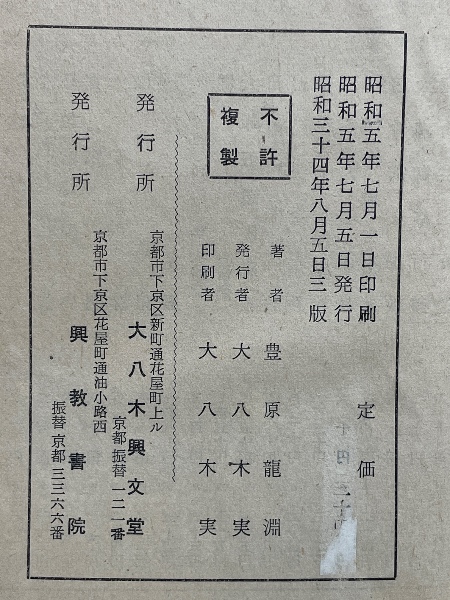 昭和五年七月一日印刷
昭和五年七月五日発行
昭和三十四年八月五日三版
定価
不許
複製
著者 豊原龍淵
発行者 大八木実
印刷者 大八木実
京都市下京区新町通花屋町上ル
発行所 大八木興文堂
京都振替一二一番
京都市下京区花屋町通油小路西
発行所 興教書院
振替京都三三六六番